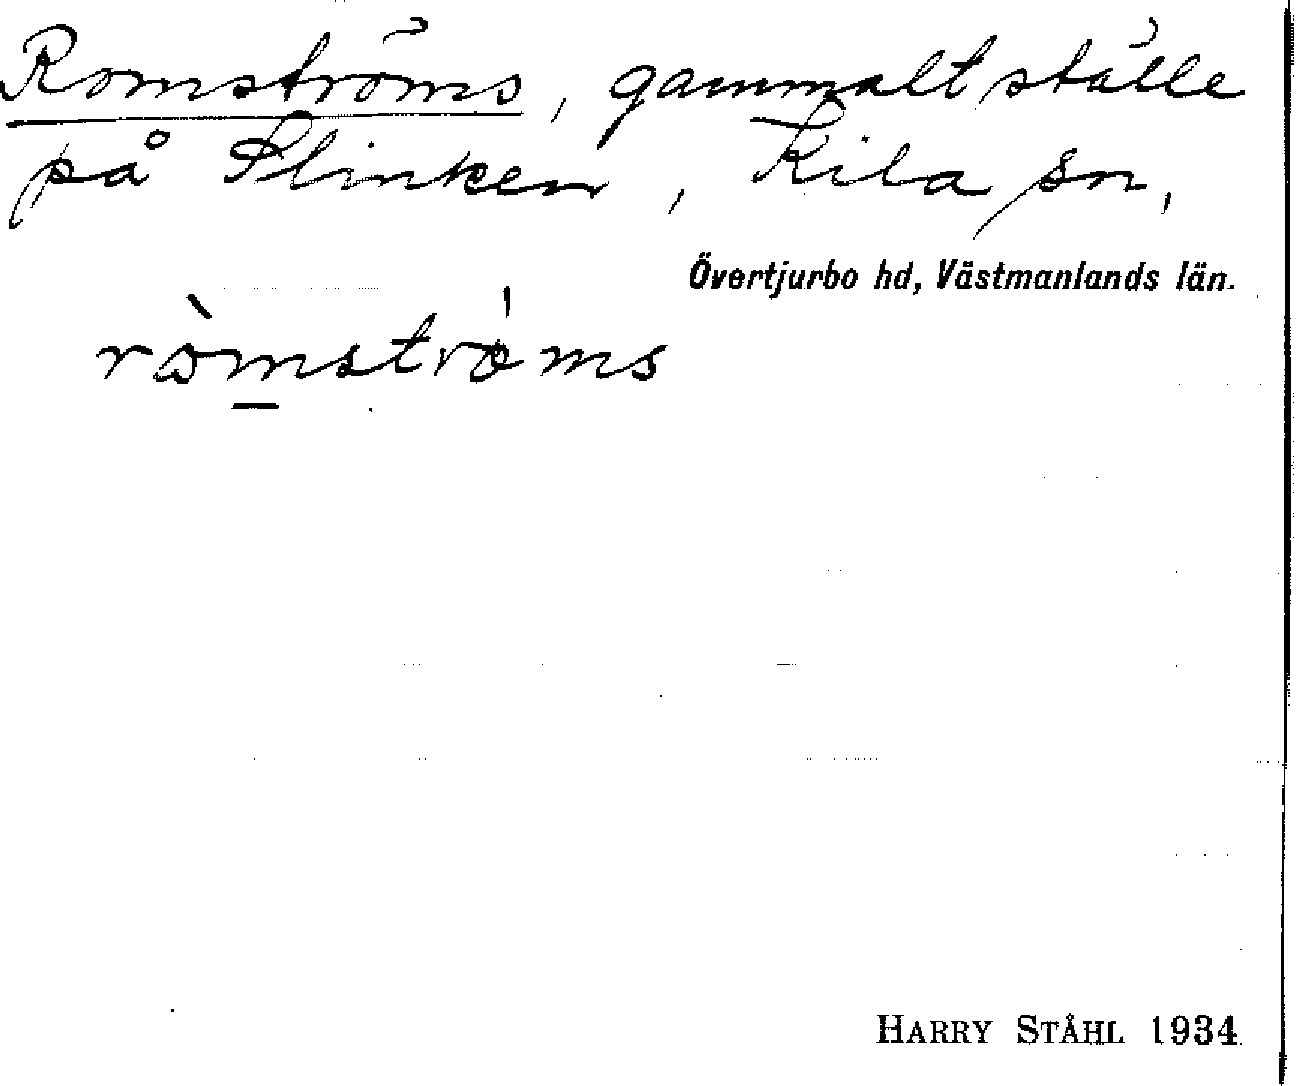 Romströms, gammalt ställe
på Slinken, Kila sn,
Övertjurbo hd, Västmanlands län.
ròmströ́ms
HARRY STÅHL 1934